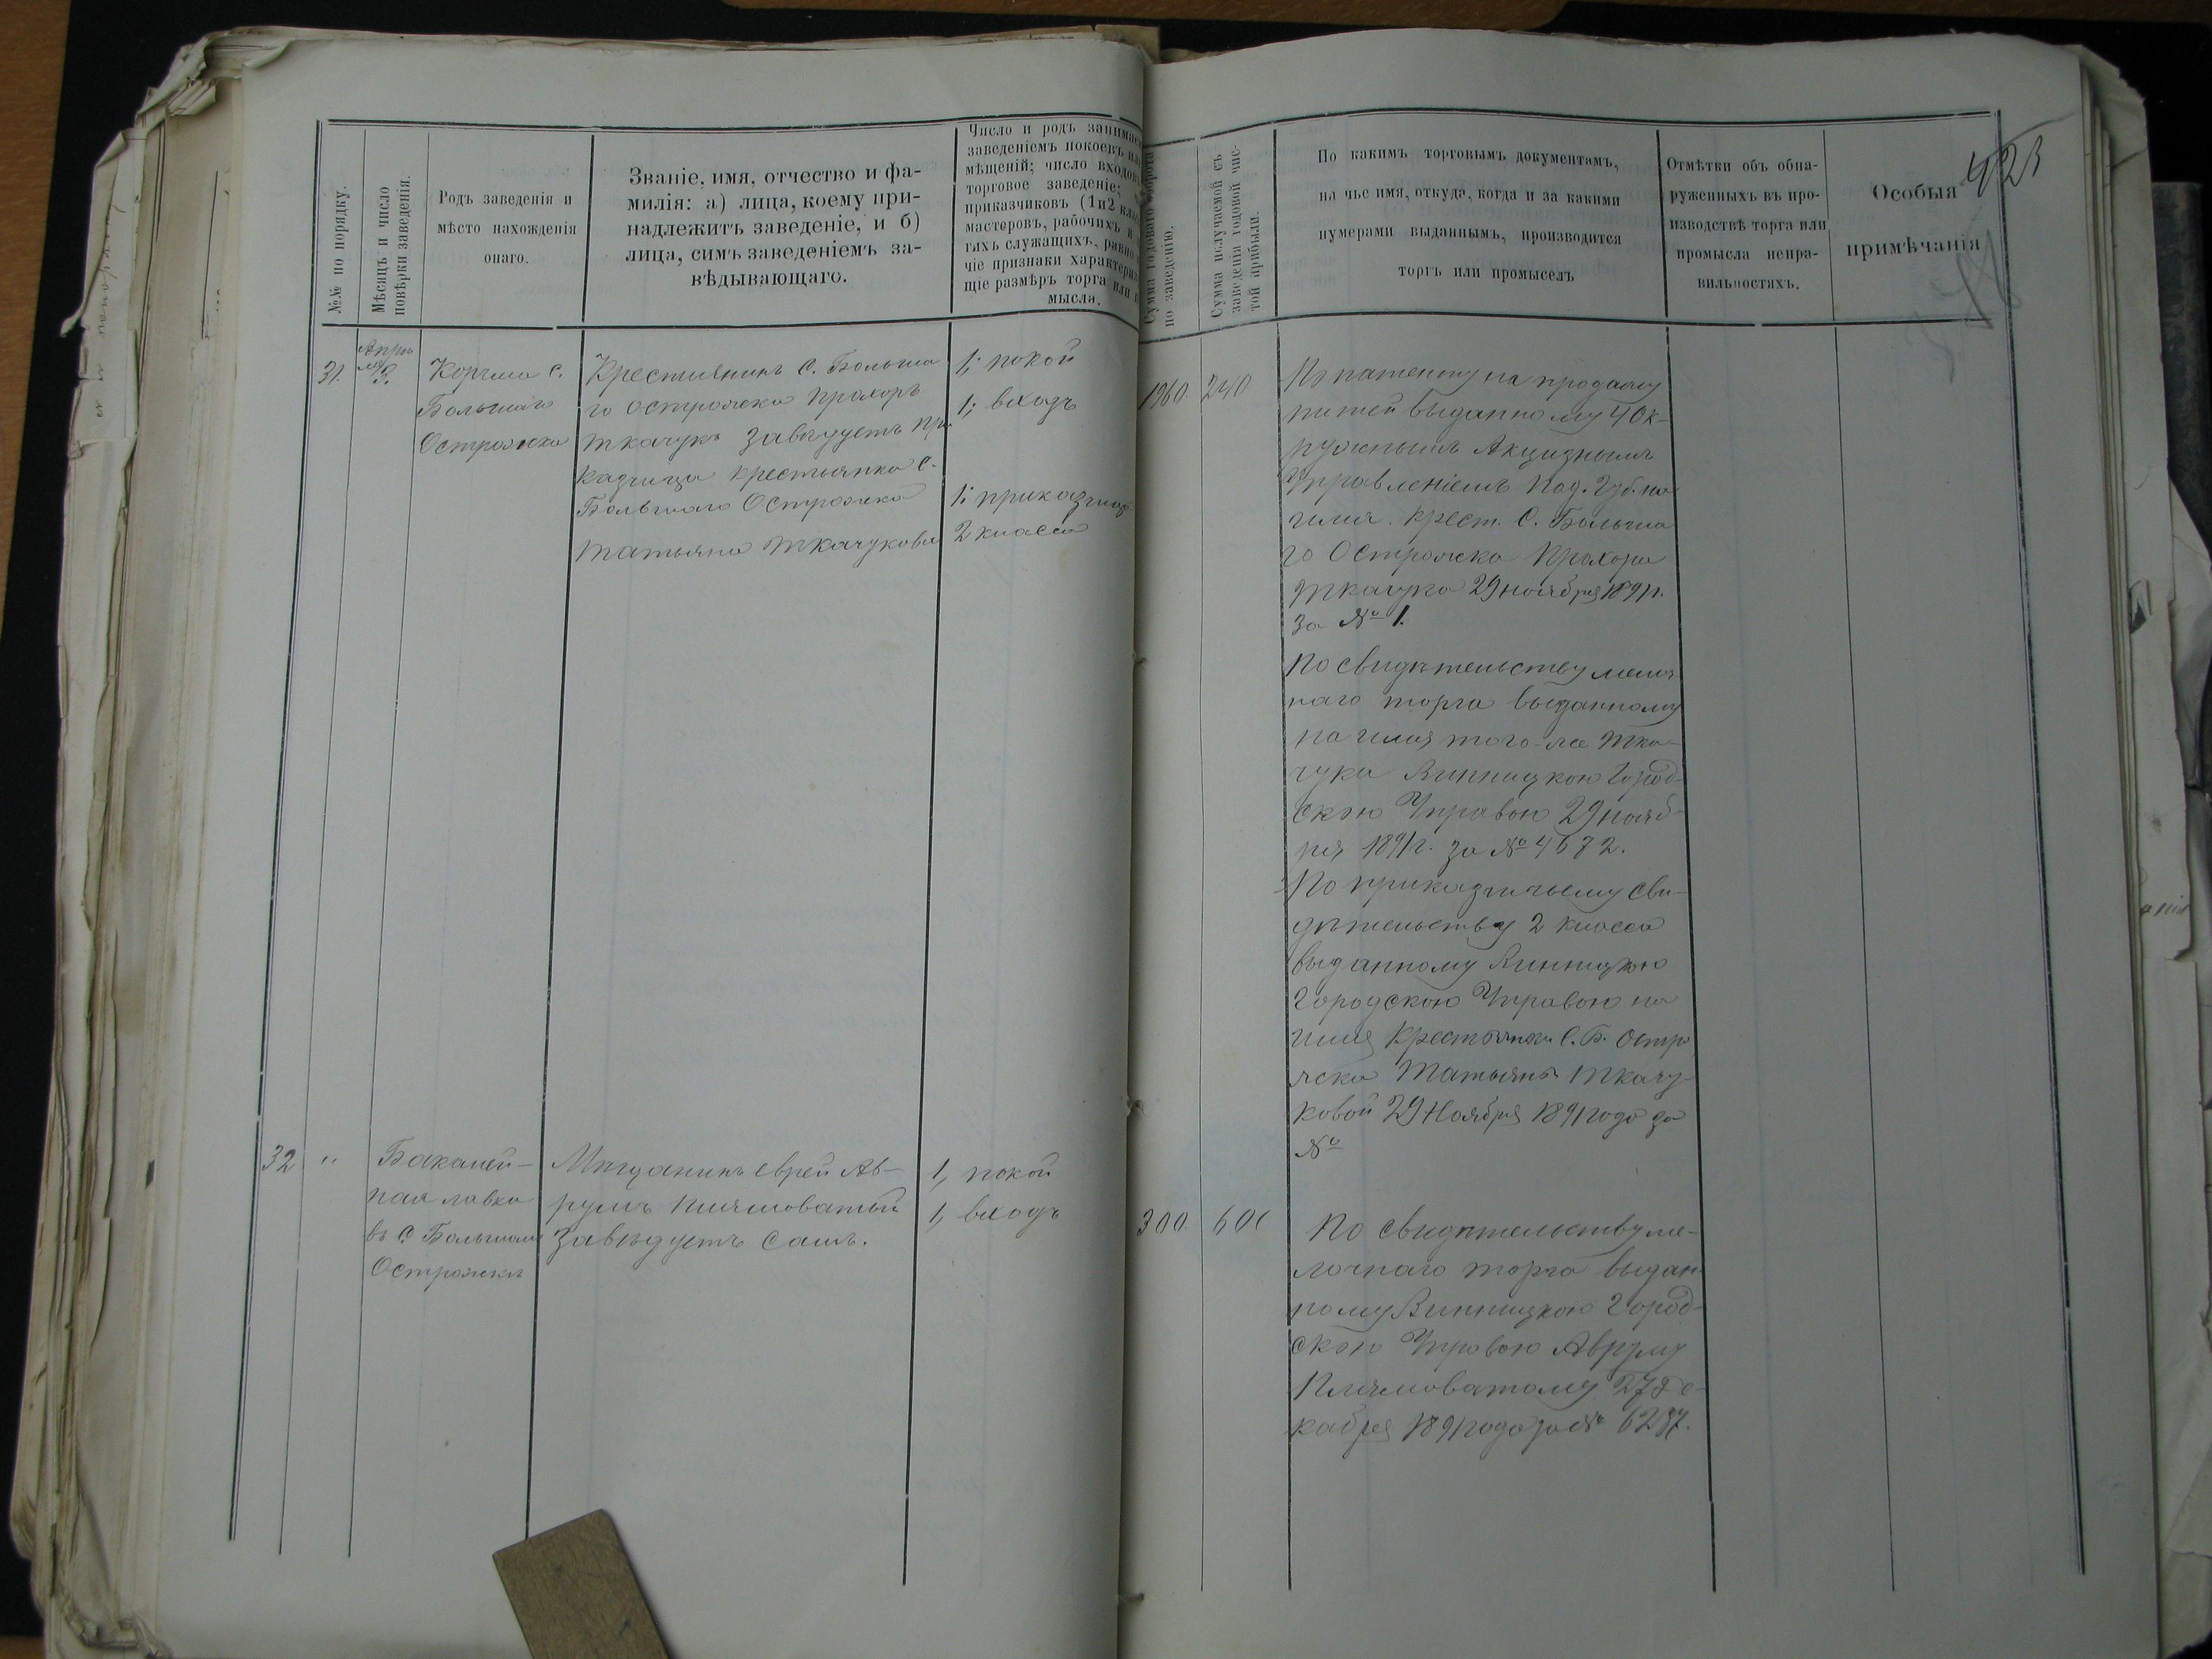 №№ по порядку.
Мѣсяцъ и число
повѣрки заведенія.
Родъ заведенія и
мѣсто нахожденія
онаго.
Званіе, имя, отчество и фа-
милія: а) лица, коему при-
надлежитъ заведеніе, и б)
лица, симъ заведеніемъ за-
вѣдывающаго.
Число и родъ занимае
заведеніемъ покоевъ и
мѣщеній; число входов
торговое заведеніе;
приказчиковъ (1 и 2
мастеровъ, рабочихъ и
гихъ служащихъ, равно
чіе признаки характери
щіе размѣръ торга или
мысла.
Сумма годоваго оборота
по заведенію.
Сумма получаемой съ
заведенія годовой чис-
той прибыли.
По какимъ торговымъ документамъ,
на чье имя, откуда, когда и за какими
нумерами выданнымъ, производится
торгъ или промыселъ
Отмѣтки объ обна-
руженныхъ въ про-
изводствѣ торга или
промысла непра-
вильностяхъ.
Особыя
примѣчанія
31.
Апрѣ
ля
3.
Корчма с.
Большаго
Острожка
Крестьянинъ С. Больша
го Острожка Прохоръ
Ткачукъ завѣдуетъ при
казчица крестьянка С.
Большаго Острожка
Татьяна Ткачукова
1; покой
1; входъ
1; приказчица
2 класса
1960. 240
По патенту на продажу
питей выданному 4 Ок-
ружнымъ Акцизнымъ
Управленіемъ Под. Губ. на
имя. Крест. С. Больша
го Острожка Прохора
Ткачука 29 ноября 1891 г.
за № 1.
По свидѣтельству мелоч
наго торга выданному
на имя того-же Тка-
чука Винницкою Город-
скою Управою 29 нояб-
ря 1891 г. за № 4672.
По приказчичьему сви-
дѣтельству 2 класса
выданному Винницкою
Городскою Управою на
имя Крестьянки С. Б. Остро
жска Татьяны Ткачу-
ковой 29 Ноября 1891 года за
№
32 "
Бакалей-
ная лавка
въ С. Большомъ
Острожкѣ
Мѣщанинъ еврей Ав-
румъ
Завѣдуетъ самъ.
1, покой
1, входъ
300.
По свидѣтельству ме-
лочнаго торга выдан-
ному Винницкою Город-
скою Управою Авруму
27 Де-
кабря 1891 года за № 6287.